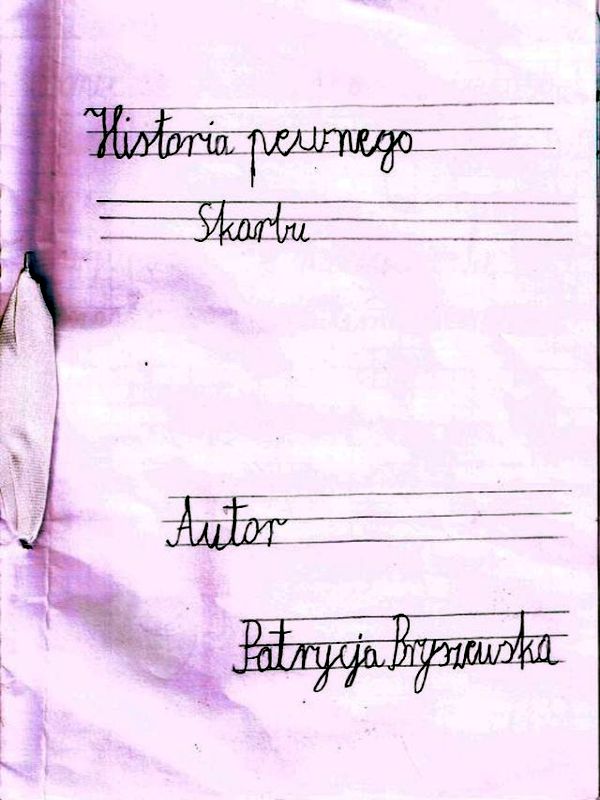 Historia pewnego
Skarbu
Autor
Patrycja Bryszewska